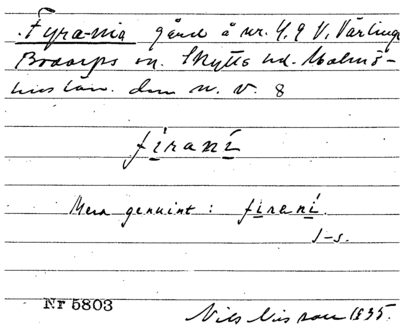 Fyra-nia gård å nr. 4, 9 V. Värlinge
Bodarps sn. Skytts hd. Malmö-
hus län. den n. v. 8
firaní
Mera genuint: firaní.
J-s.
Nr 5803
Nils Nilsson 1935.